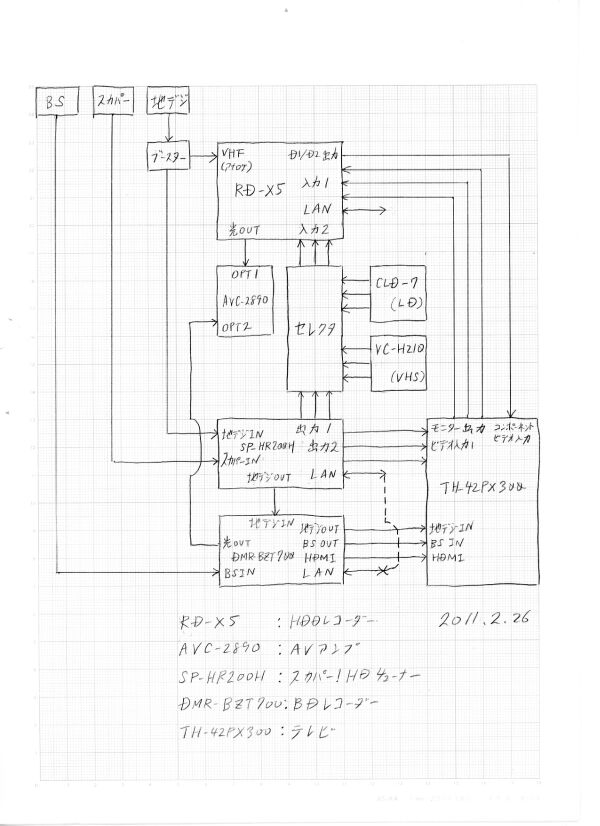 BS
スカパー
地デジ
ブースター
VHF
(アナログ)
D1/D2 出力
RD-X5
入力1
LAN
光OUT
入力2
OPT1
AVC-2890
OPT2
セレクタ
CLD-7
(LD)
VC-H210
(VHS)
地デジIN
出力1
SP-HR200H
出力2
スカパーIN
地デジOUT
LAN
モニター出力
コンポーネント
ビデオ入力
ビデオ入力1
TH-42PX300
地デジIN
BS IN
HDMI
地デジIN
地デジOUT
光OUT
BS OUT
DMR-BZT700
HDMI
BSIN
LAN
RD-X5 : HDDレコーダー
2011.2.26
AVC-2890 : AVアンプ
SP-HR200H : スカパー!HDチューナー
DMR-BZT700: BDレコーダー
TH-42PX300 : テレビ